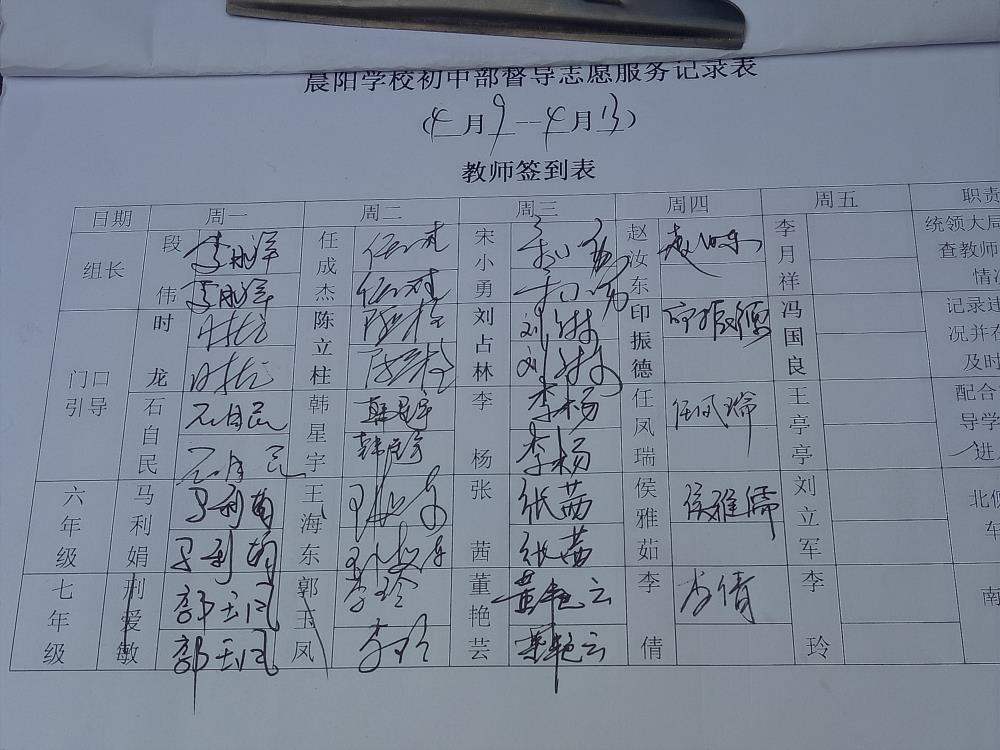 晨阳学校初中部督导志愿服务记录表
(4月9--4月13)
教师签到表
日期 周一 周二 周三 周四 周五 职责
组长 段伟 任成杰 宋小勇 赵汝东 李月祥 统领大局
查教师
情况
门口引导 时龙 时龙 时龙 陈立柱 陈立柱 陈立柱 刘占林 刘占林 刘占林 印振德 印振德 冯国良 记录违
况并在
及时
石自民 石自民 石自民 韩星宇 韩星宇 韩星宇 李杨 李杨 李杨 任凤瑞 任凤瑞 王亭亭 配合
导学
进
六年级 马利娟 马利娟 马利娟 王海东 王海东 王海东 张茜 张茜 张茜 侯雅茹 侯雅儒 刘立军 北侧
车
七年级 刑爱敏 郭玉凤 郭玉凤 郭玉凤 李玲 李玲 董艳芸 董艳云 董艳云 李倩 李倩 李玲 南